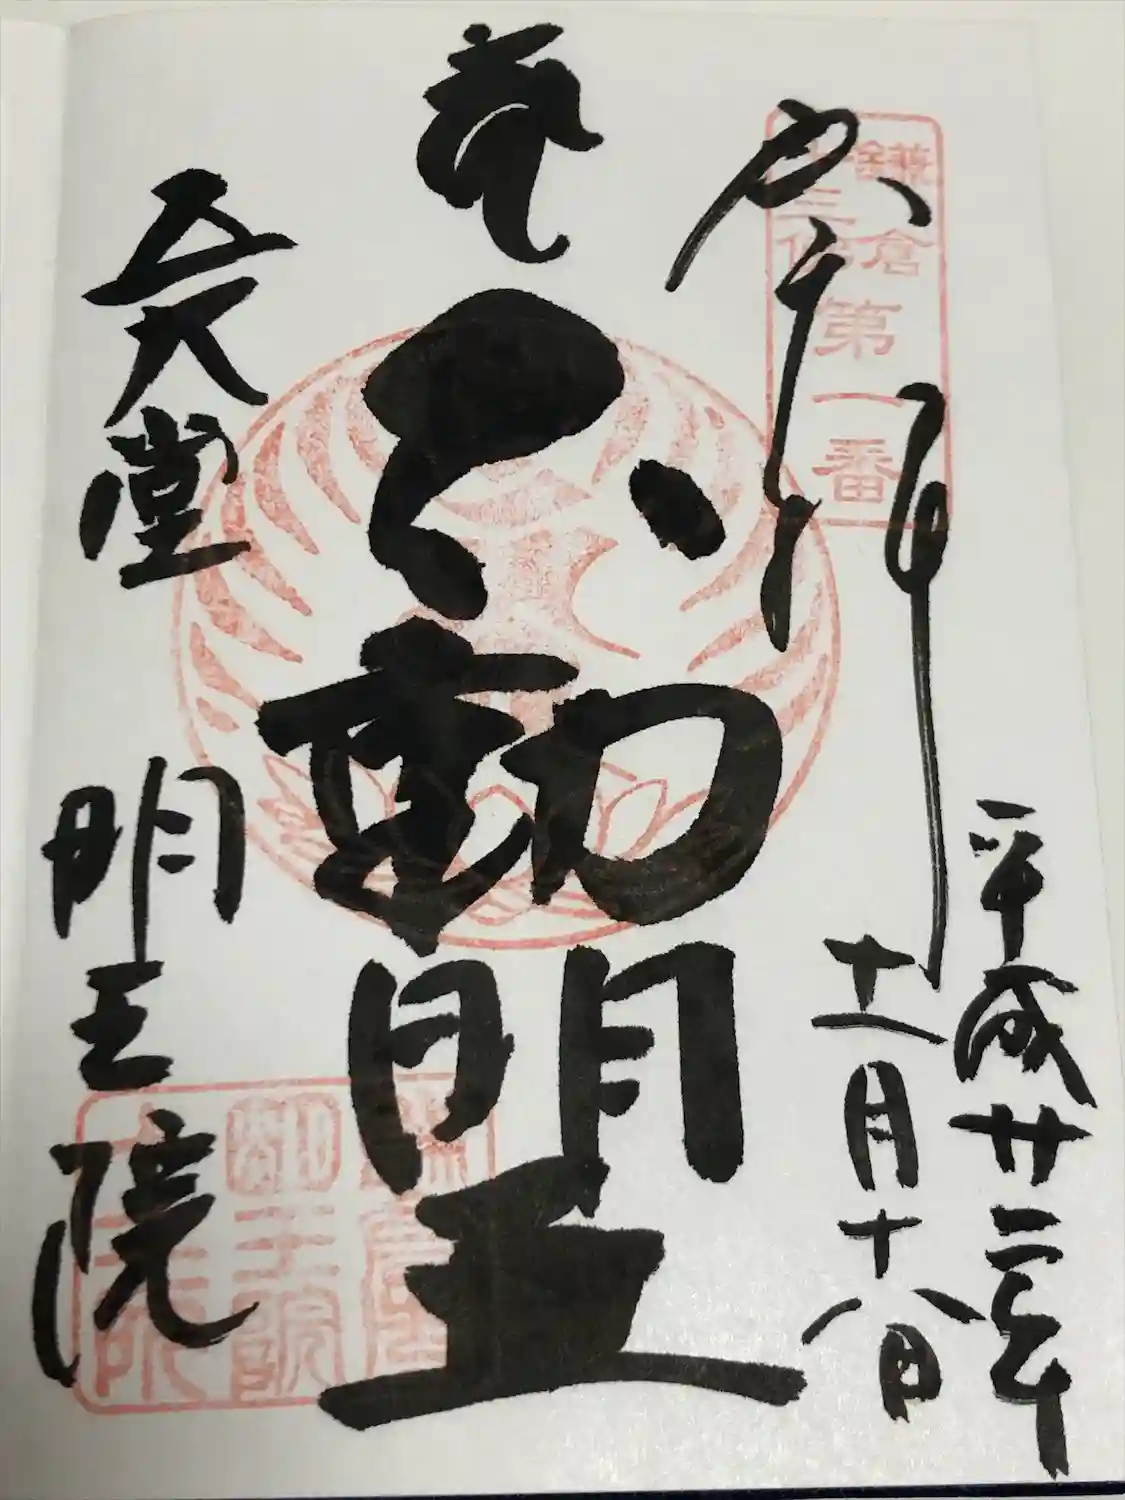 奉拝
鎌倉
十三佛
第一番
平成廿二年
十一月十八日
不動明王
五大堂
明王院